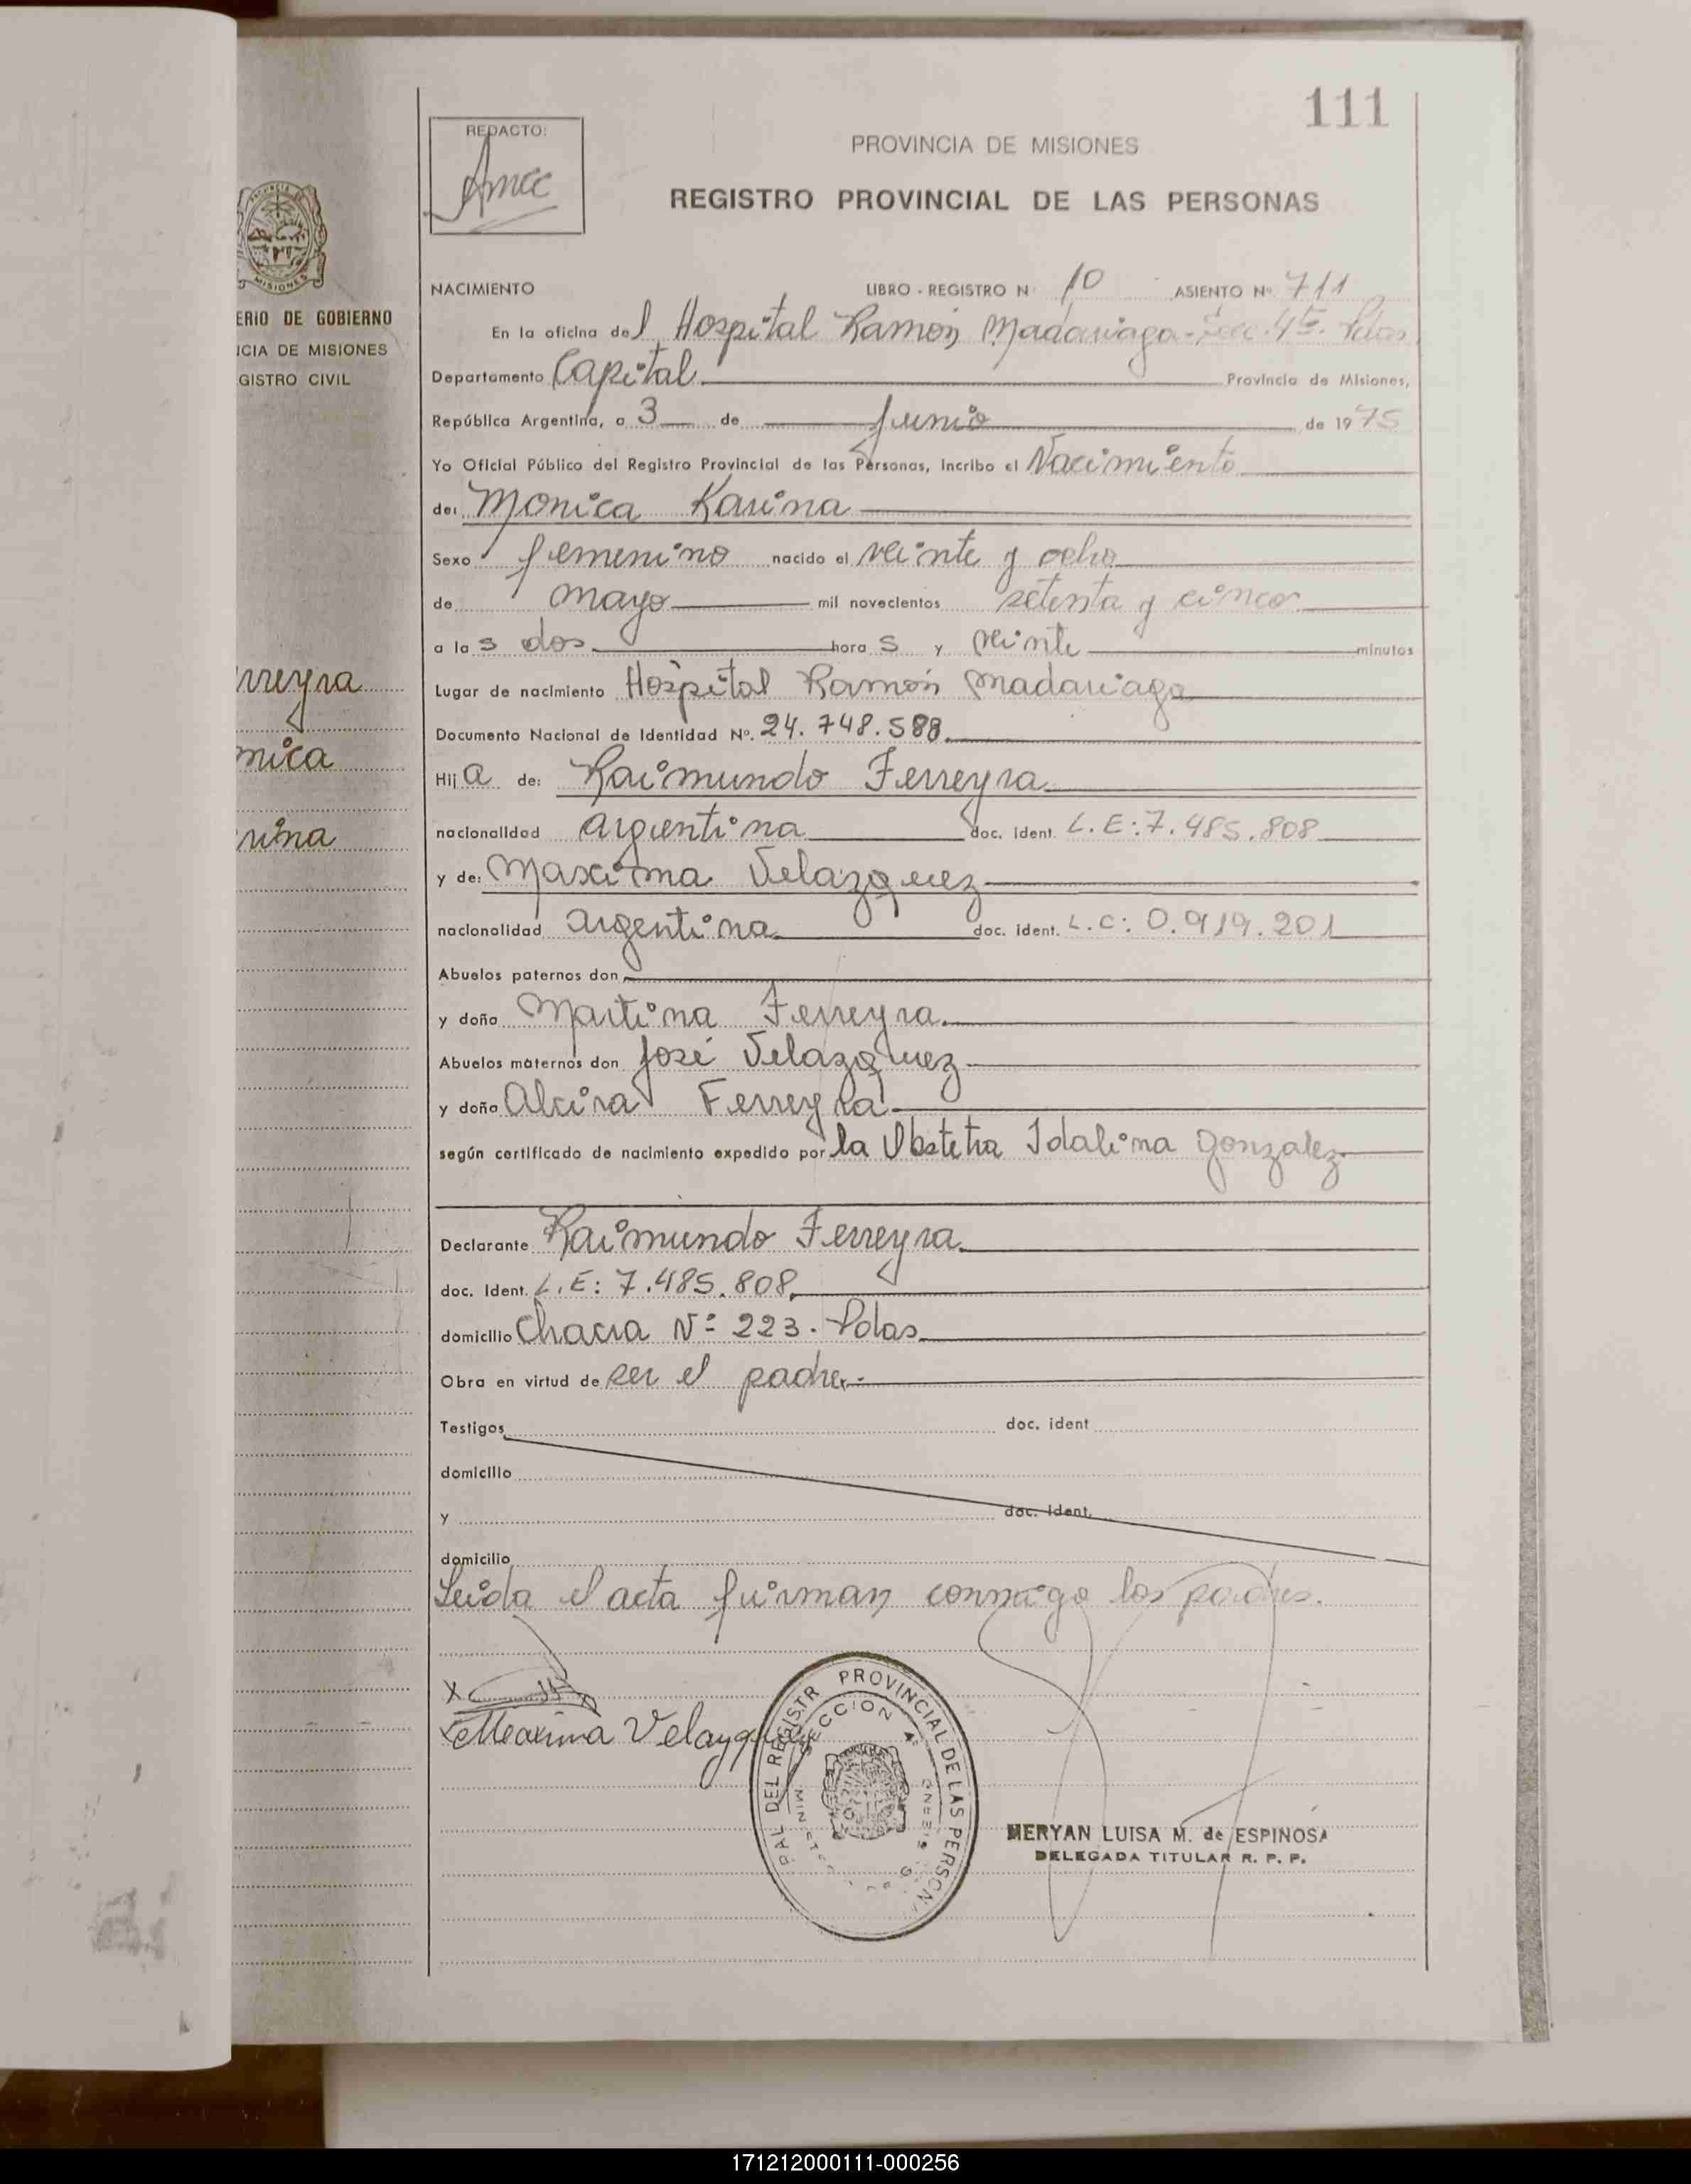 111
REDACTO:
PROVINCIA DE MISIONES
REGISTRO PROVINCIAL DE LAS PERSONAS
MISIONES
ERIO DE GOBIERNO
CIA DE MISIONES
GISTRO CIVIL
rreyra
nica
rina
NACIMIENTO LIBRO - REGISTRO N° 10 ASIENTO N° 711
En la oficina del Hospital Ramón Madariaga - Secc. 4ta. Pdas.
Departamento Capital Provincia de Misiones,
República Argentina, a 3 de Junio de 1975
Yo Oficial Público del Registro Provincial de las Personas, Incribo el Nacimiento
de: Monica Karina
Sexo femenino nacido el veinte y ocho
de mayo mil novecientos setenta y cinco
a las dos horas y veinte minutos
Lugar de nacimiento Hospital Ramón Madariaga
Documento Nacional de Identidad N°. 24.748.588.
Hija de: Raimundo Ferreyra
nacionalidad argentina doc. ident. L.E: 7.485.808
y de: Maxima Velazquez
nacionalidad argentina doc. ident. L.C: 0.919.201
Abuelos paternos don
y doña Martina Ferreyra.
Abuelos maternos don José Velazquez
y doña Alcira Ferreyra
según certificado de nacimiento expedido por la Obstetra Idalina Gonzalez
Declarante Raimundo Ferreyra
doc. Ident. L.E: 7.485.808
domicilio Chacra N° 223. Pdas
Obra en virtud de ser el padre.
Testigos doc. ident
domicilio
y doc. Ident.
domicilio
Leida el acta firman conmigo los padres.
X
Maxima Velazquez
PAL DEL REGISTR PROVINCIAL DE LAS PERSON
SECCION 4
MERYAN LUISA M. de ESPINOSA
DELEGADA TITULAR R. P. P.
171212000111-000256